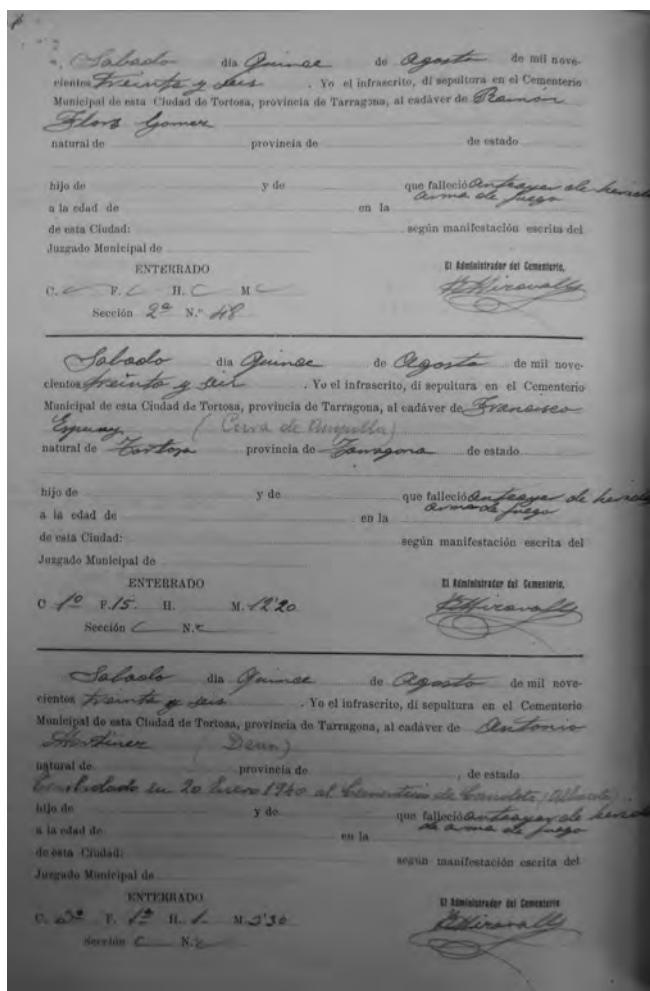 Sabado día Quince de Agosto de mil nove-
cientos treinta y seis . Yo el infrascrito, di sepultura en el Cementerio
Municipal de esta Ciudad de Tortosa, provincia de Tarragona, al cadáver de Ramón
Flors Gomez
natural de provincia de de estado
hijo de y de que falleció anteayer de herida
arma de fuego
a la edad de en la
de esta Ciudad: según manifestación escrita del
Juzgado Municipal de
ENTERRADO El Administrador del Cementerio,
C. F. H. M.
Sección 2ª N.º 48
Sabado día Quince de Agosto de mil nove-
cientos treinta y seis . Yo el infrascrito, di sepultura en el Cementerio
Municipal de esta Ciudad de Tortosa, provincia de Tarragona, al cadáver de Francisco
Espuny (Cura de Ampolla)
natural de Tortosa provincia de Tarragona de estado
hijo de y de que falleció anteayer de herida
arma de fuego
a la edad de en la
de esta Ciudad: según manifestación escrita del
Juzgado Municipal de
ENTERRADO El Administrador del Cementerio,
C 1º F. 15. H. M. 12'20
Sección N.
Sabado día Quince de Agosto de mil nove-
cientos treinta y seis . Yo el infrascrito, di sepultura en el Cementerio
Municipal de esta Ciudad de Tortosa, provincia de Tarragona, al cadáver de Antonio
Martinez
natural de provincia de , de estado
en 20 Enero 1940 al Cementerio de Caudete (Albacete)
hijo de y de que falleció anteayer de herida
de arma de fuego
a la edad de en la
de esta Ciudad: según manifestación escrita del
Juzgado Municipal de
ENTERRADO El Administrador del Cementerio
C. F. 1ª H. 1 M. 2'30
Sección N.